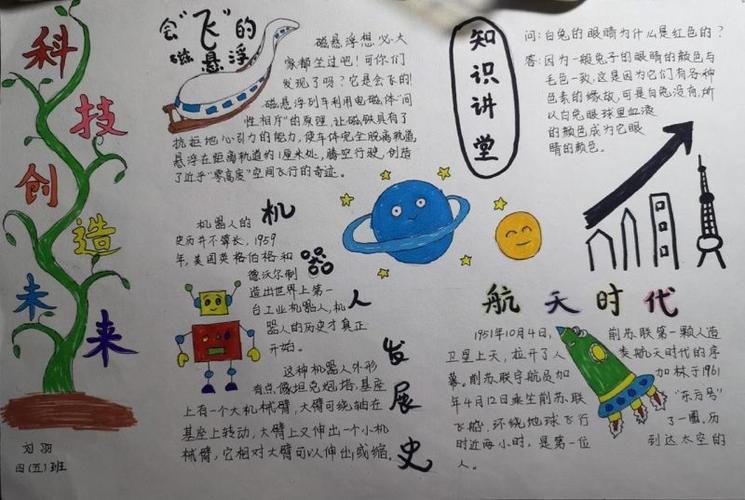 科
技
创
造
未
来
刘羽
四(五)班
会“飞”的
磁悬浮
磁悬浮想必大
家都坐过吧!可你们
发现了吗?它是会飞的!
磁悬浮列车利用电磁体“同
性相斥”的原理,让磁铁具有了
抗拒地心引力的能力,使车体完全脱离轨道,
悬浮在距离轨道约1厘米处,腾空行驶,创造
了近乎“零高度”空间飞行的奇迹。
知识讲堂
问:白兔的眼睛为什么是红色的?
答:因为一般兔子的眼睛的颜色与
毛色一致,这是因为它们有各种
色素的缘故,可是白兔没有,所
以白兔眼球里血液
的颜色成为它眼
睛的颜色。
机器人发展史
机器人的
史历并不算长,1959
年,美国英格伯格和
德沃尔制
造出世界上第一
台工业机器人,机
器人的历史才真正
开始。
这种机器人外形
有点像坦克炮塔,基座
上有一个大机械臂,大臂可绕轴在
基座上转动,大臂上又伸出一个小机
械臂,它相对大臂可以伸出或缩。
航天时代
1951年10月4日,前苏联第一颗人造
卫星上天,拉开了人类航天时代的序
幕。前苏联宇航员加加林于1961
年4月12日乘坐前苏联“东方号”
飞船,环绕地球飞行了一圈,历
时近两小时,是第一位到达太空的
人。